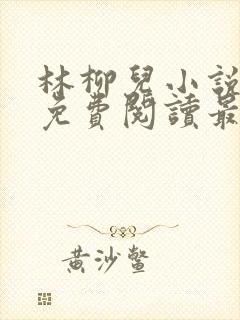 林柳兒小說
免費閱讀最
黃沙鱉